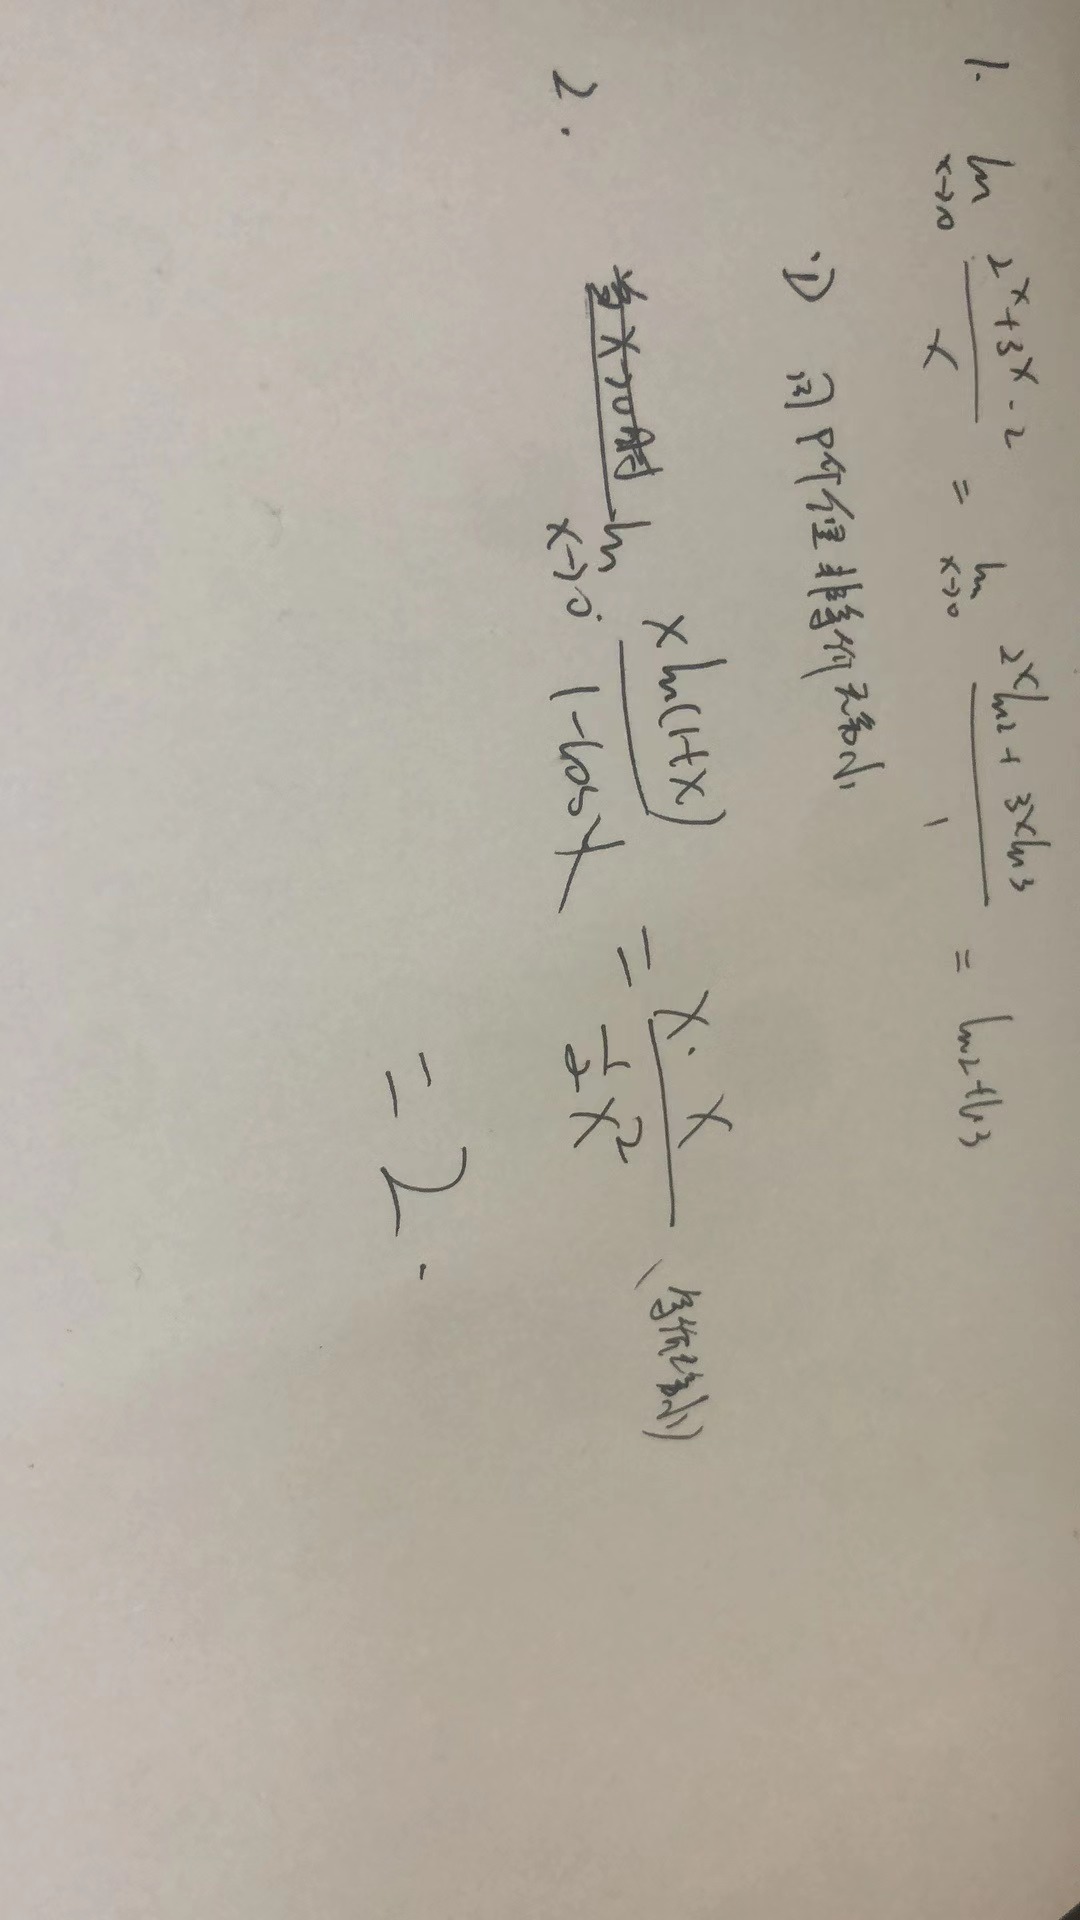 1. lim x→0 (2^x+3^x-2)/x = lim x→0 (2^x ln2 + 3^x ln3)/1 = ln2+ln3
∴D 同阶但非等价无穷小
2. 当x→0时 lim x→0 x ln(1+x)/(1-cosx) = x·x/(1/2 x²) (等价无穷小)
= 2.